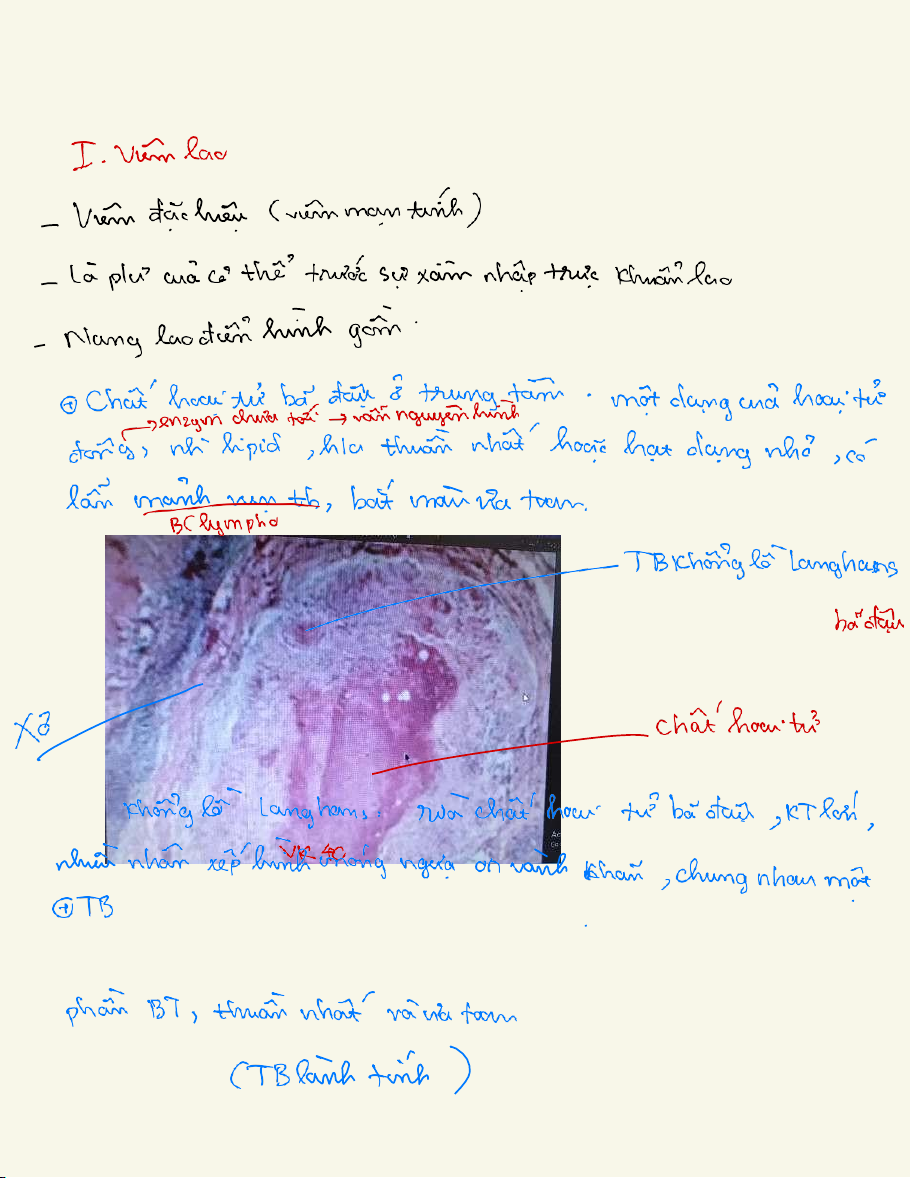 I. Viêm lao
- Viêm đặc hiệu (viêm mạn tính)
- Là pư của cơ thể trước sự xâm nhập trực khuẩn lao
- Nang lao điển hình gồm:
⊕ Chất hoại tử bã đậu ở trung tâm: một dạng của hoại tử
→ enzym chưa tới → vẫn nguyên hình
đông, nh` lipid, h/a thuần nhất hoặc hạt dạng nhỏ, có
lẫn mảnh vụn tb, bắt màu ưa toan.
BC lympho
TB khổng lồ Langhans
bã đậu
Xơ
Chất hoại tử
khổng lồ Langhans: rìa chất hoại tử bã đậu, KT lớn,
VK 4C
nhiều nhân xếp hình móng ngựa or vành khăn, chung nhau một
⊕ TB
phần BT, thuần nhất và ưa toan
(TB lành tính)